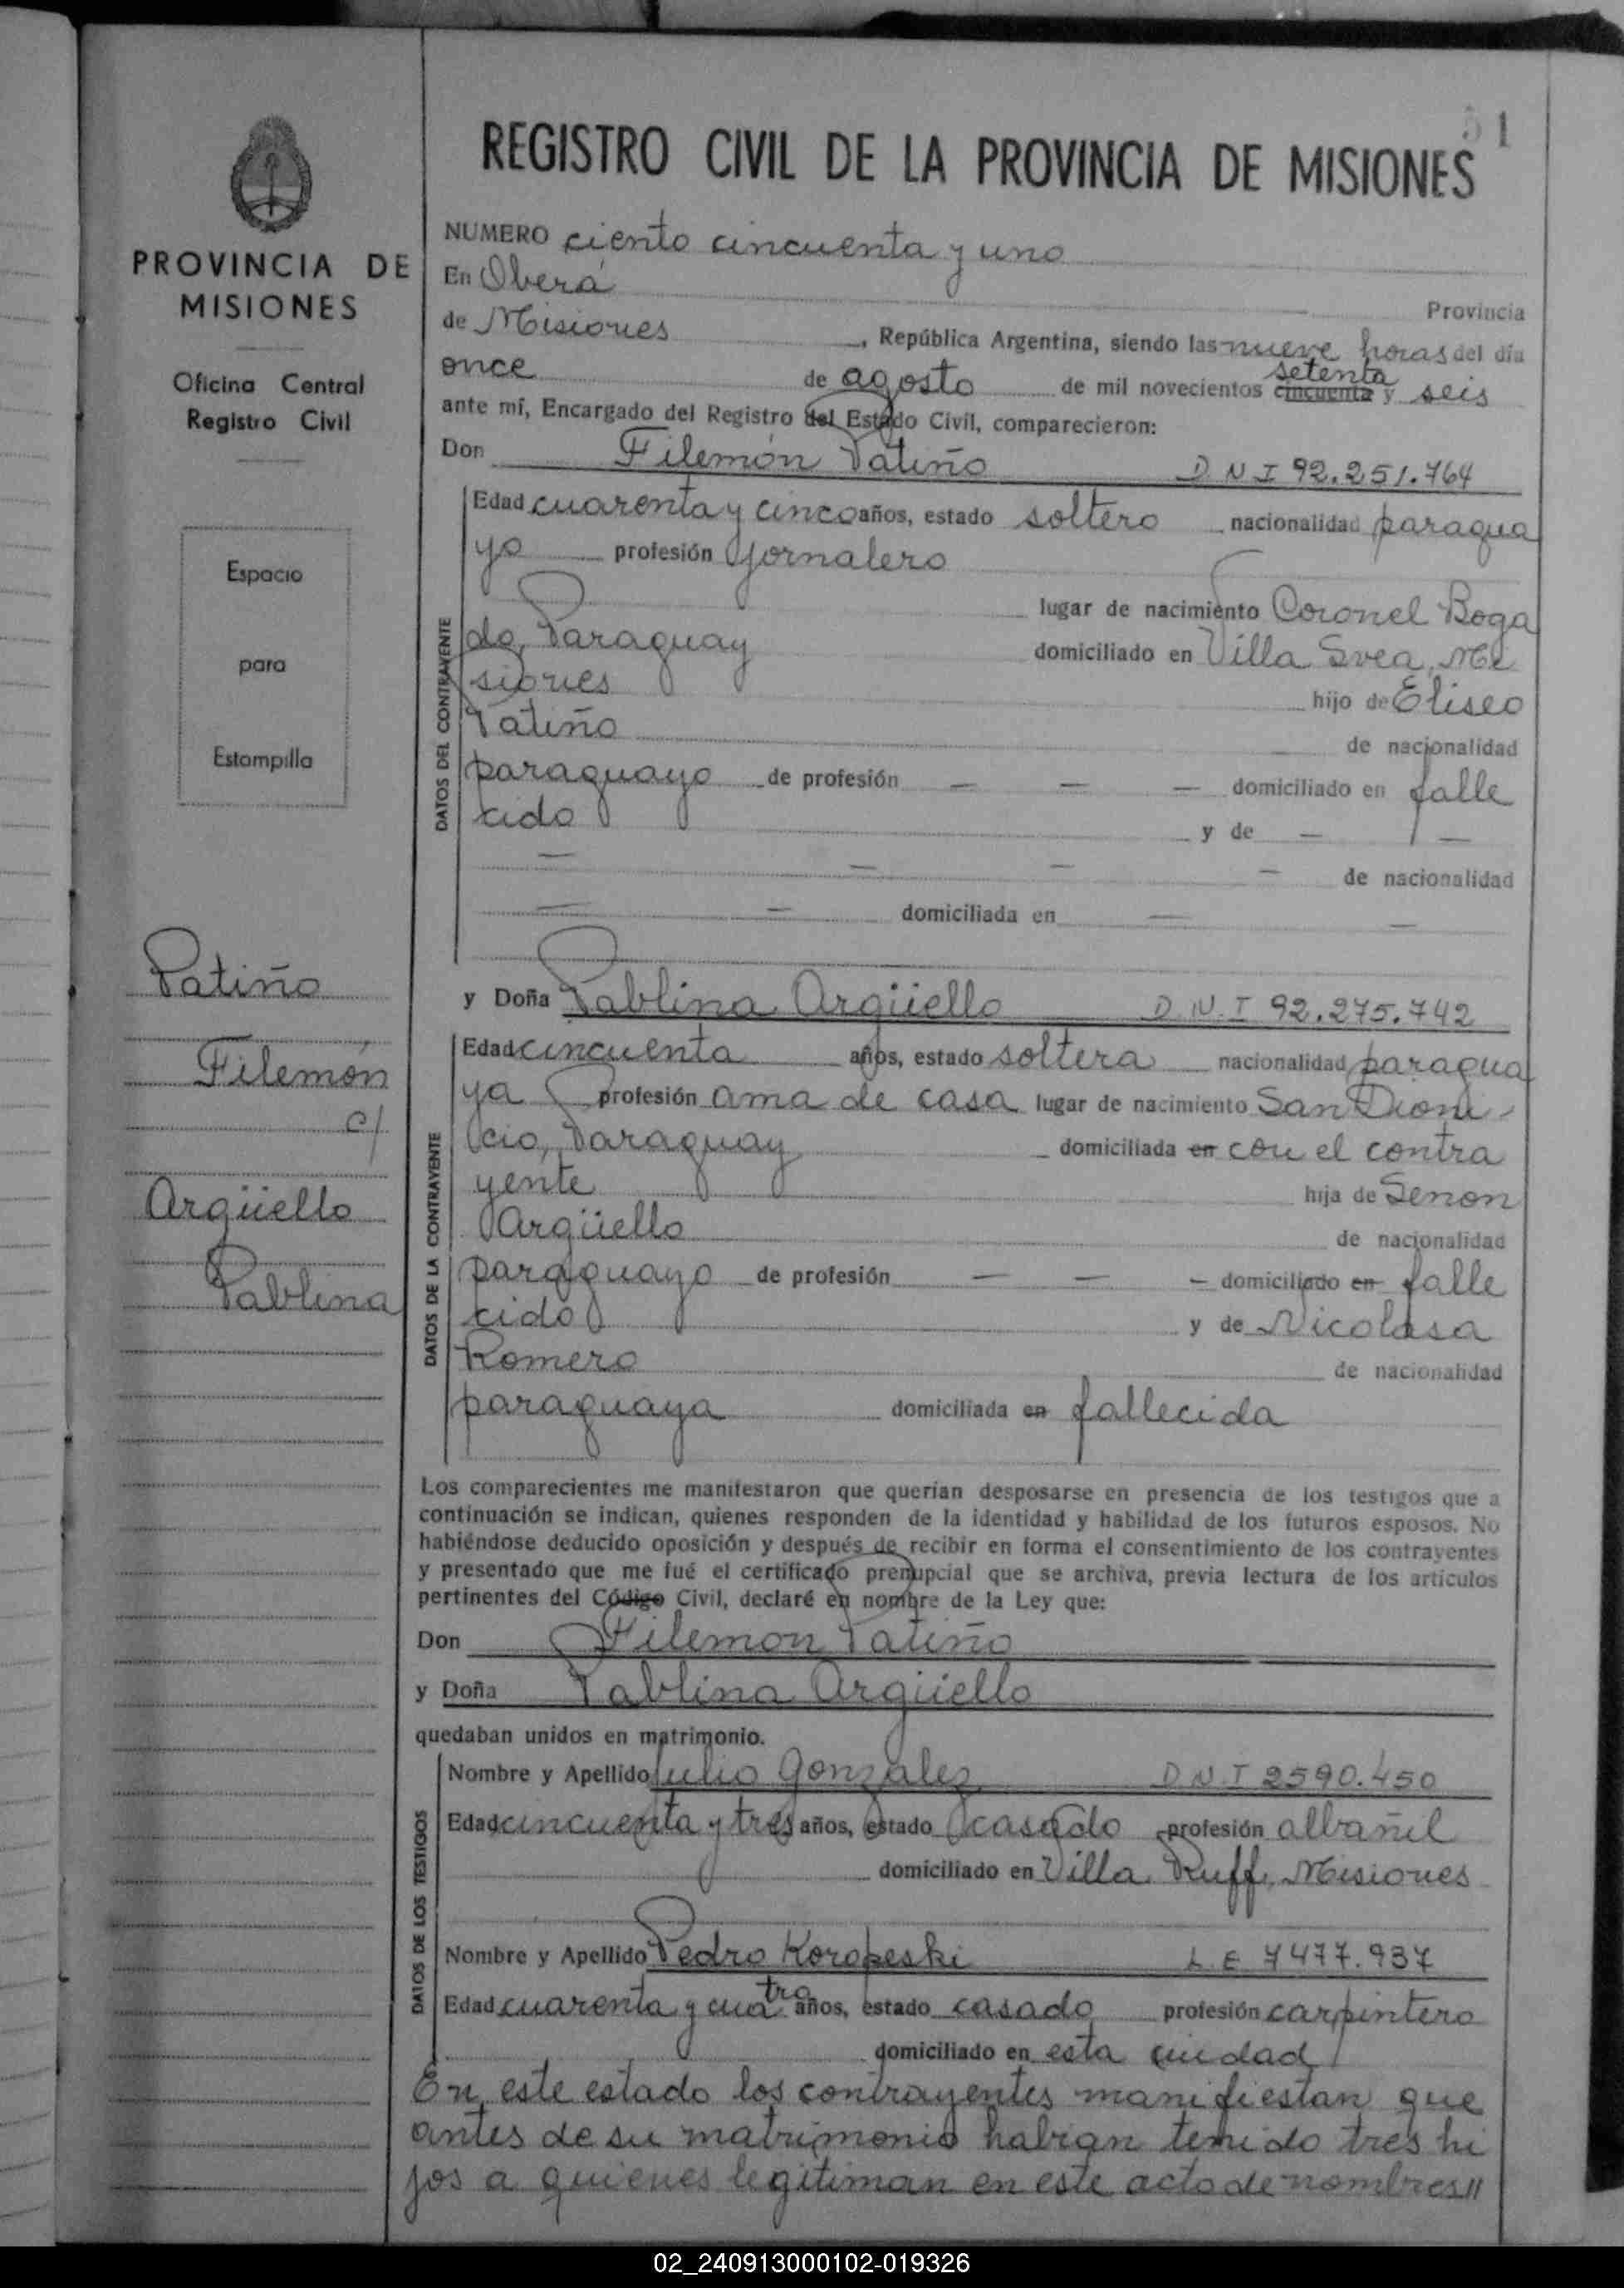 51
REGISTRO CIVIL DE LA PROVINCIA DE MISIONES
PROVINCIA DE
MISIONES
Oficina Central
Registro Civil
Espacio
para
Estampilla
Patiño
Filemón
c/
Argüello
Pablina
NUMERO ciento cincuenta y uno
En Oberá Provincia
de Misiones, República Argentina, siendo las nueve horas del día
once de agosto de mil novecientos cincuenta setenta y seis
ante mí, Encargado del Registro del Estado Civil, comparecieron:
Don Filemón Patiño D N I 92.251.764
DATOS DEL CONTRAYENTE
Edad cuarenta y cinco años, estado soltero nacionalidad paragua
yo profesión jornalero
lugar de nacimiento Coronel Boga
do, Paraguay domiciliado en Villa Svea, Mi
siones hijo de Eliseo
Patiño de nacionalidad
paraguayo de profesión — — — domiciliado en falle
cido y de — —
— — — — de nacionalidad
— — domiciliada en — —
y Doña Pablina Argüello D.N.I 92.275.742
DATOS DE LA CONTRAYENTE
Edad cincuenta años, estado soltera nacionalidad paragua
ya profesión ama de casa lugar de nacimiento San Dioni-
cio, Paraguay domiciliada en con el contra
yente hija de Senon
Argüello de nacionalidad
paraguayo de profesión — — — domiciliado en falle
cido y de Nicolasa
Romero de nacionalidad
paraguaya domiciliada en fallecida
Los comparecientes me manifestaron que querían desposarse en presencia de los testigos que a
continuación se indican, quienes responden de la identidad y habilidad de los futuros esposos. No
habiéndose deducido oposición y después de recibir en forma el consentimiento de los contrayentes
y presentado que me fué el certificado prenupcial que se archiva, previa lectura de los artículos
pertinentes del Código Civil, declaré en nombre de la Ley que:
Don Filemon Patiño
y Doña Pablina Argüello
quedaban unidos en matrimonio.
DATOS DE LOS TESTIGOS
Nombre y Apellido Julio Gonzalez D N I 2590.450
Edad cincuenta y tres años, estado casado profesión albañil
domiciliado en Villa Ruff, Misiones
Nombre y Apellido Pedro Koropeski L.E 7477.937
Edad cuarenta y cuatro años, estado casado profesión carpintero
domiciliado en esta ciudad
En este estado los contrayentes manifiestan que
antes de su matrimonio habian tenido tres hi
jos a quienes legitiman en este acto de nombres//
02_240913000102-019326